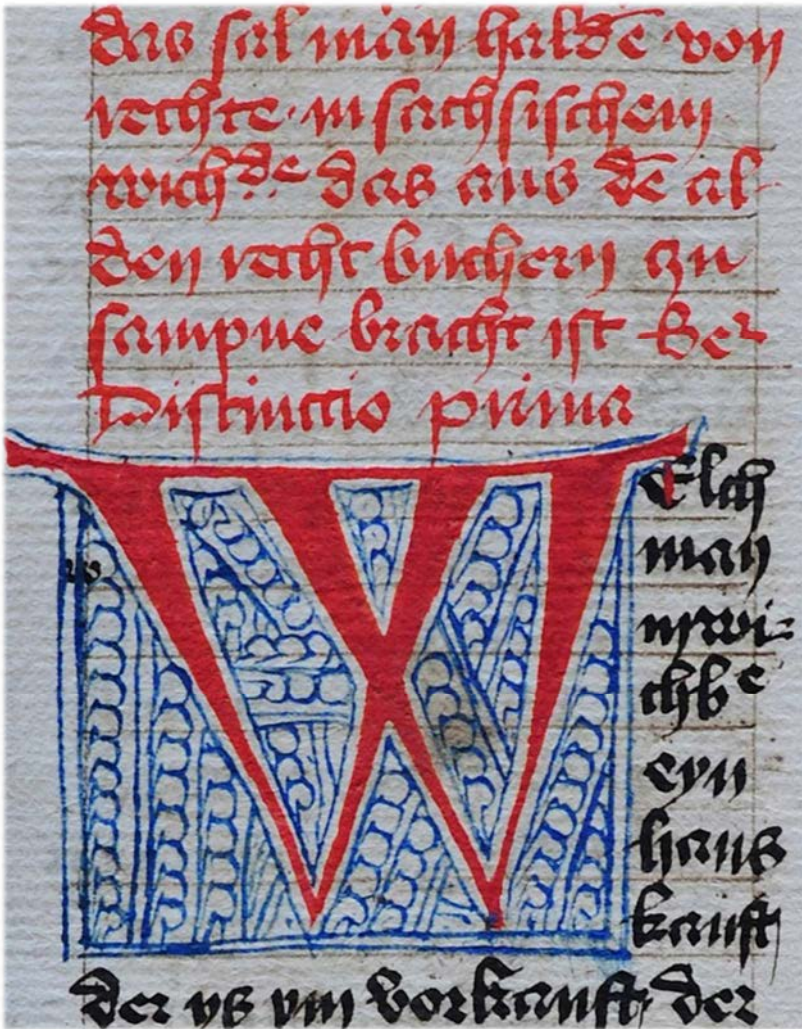 das sal man haldē von
rechte in sachsischem
wichᵈᵉ das aus dē al-
den recht buchern czu
sampne bracht ist
Distinctio prima
Welch
man
ym wi-
chbᵉ
eyn
haus
kauft
der vs ym vorkauft der